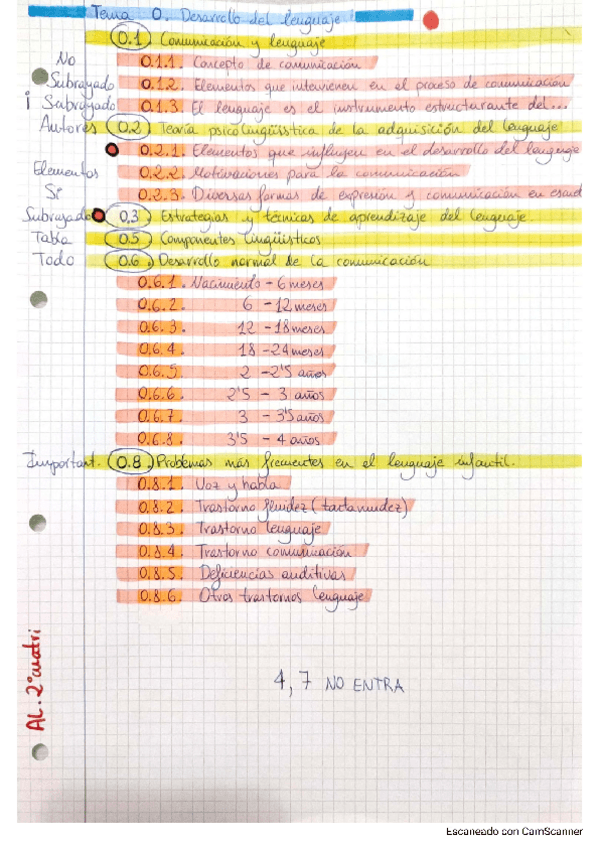 Tema 0. Desarrollo del lenguaje
0.1 Comunicación y lenguaje
No 0.1.1. Concepto de comunicación
Subrayado 0.1.2. Elementos que intervienen en el proceso de comunicación
¡ Subrayado 0.1.3. El lenguaje es el instrumento estructurante del...
Autores 0.2 Teoría psicolingüística de la adquisición del lenguaje
0.2.1. Elementos que influyen en el desarrollo del lenguaje
Elementos 0.2.2. Motivaciones para la comunicación
Si 0.2.3. Diversas formas de expresión y comunicación en
Subrayado 0.3 Estrategias y técnicas de aprendizaje del lenguaje.
Tabla 0.5 Componentes lingüísticos
Todo 0.6. Desarrollo normal de la comunicación
0.6.1. Nacimiento - 6 meses
0.6.2. 6 - 12 meses
0.6.3. 12 - 18 meses
0.6.4. 18 - 24 meses
0.6.5. 2 - 2'5 años
0.6.6. 2'5 - 3 años
0.6.7. 3 - 3'5 años
0.6.8. 3'5 - 4 años
Important. 0.8. Problemas más frecuentes en el lenguaje infantil.
0.8.1. Voz y habla
0.8.2. Trastorno fluidez (tartamudez)
0.8.3. Trastorno lenguaje
0.8.4. Trastorno comunicación
0.8.5. Deficiencias auditivas
0.8.6. Otros trastornos lenguaje
4, 7 NO ENTRA
AL. 2º cuatri
Escaneado con CamScanner